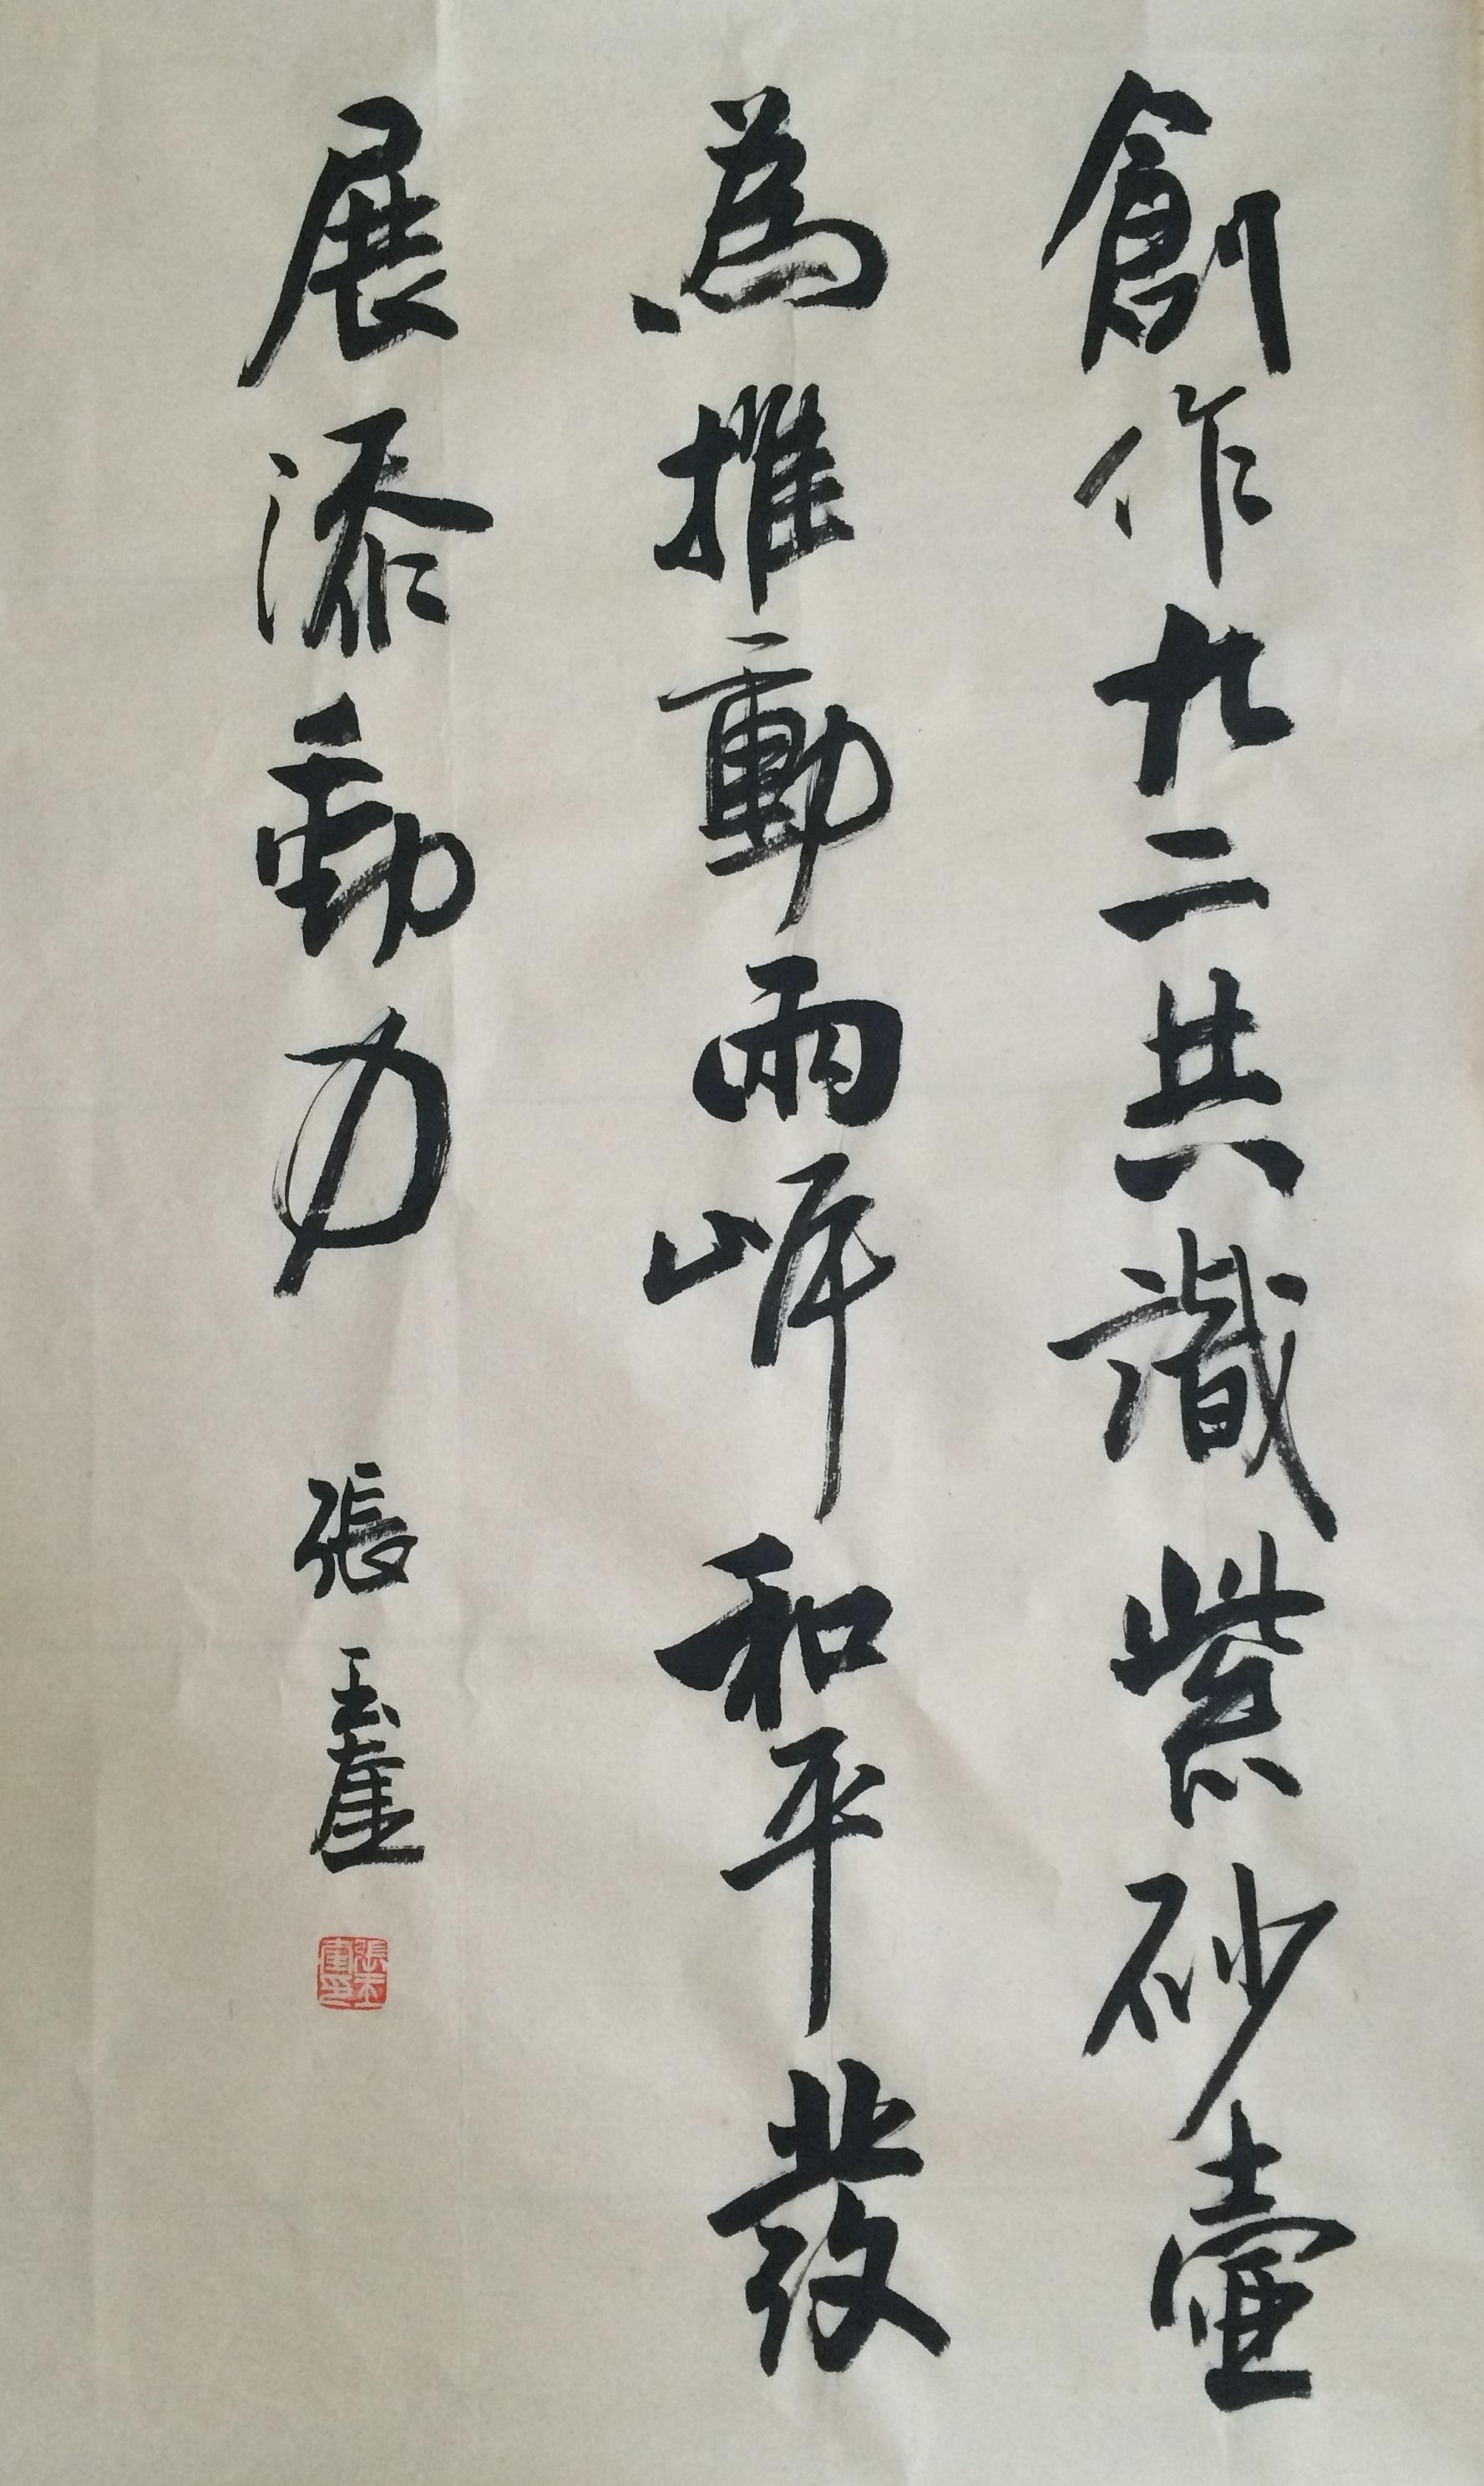 創作九二共識紫砂壺
為推動兩岸和平發
展添動力
張玉崖